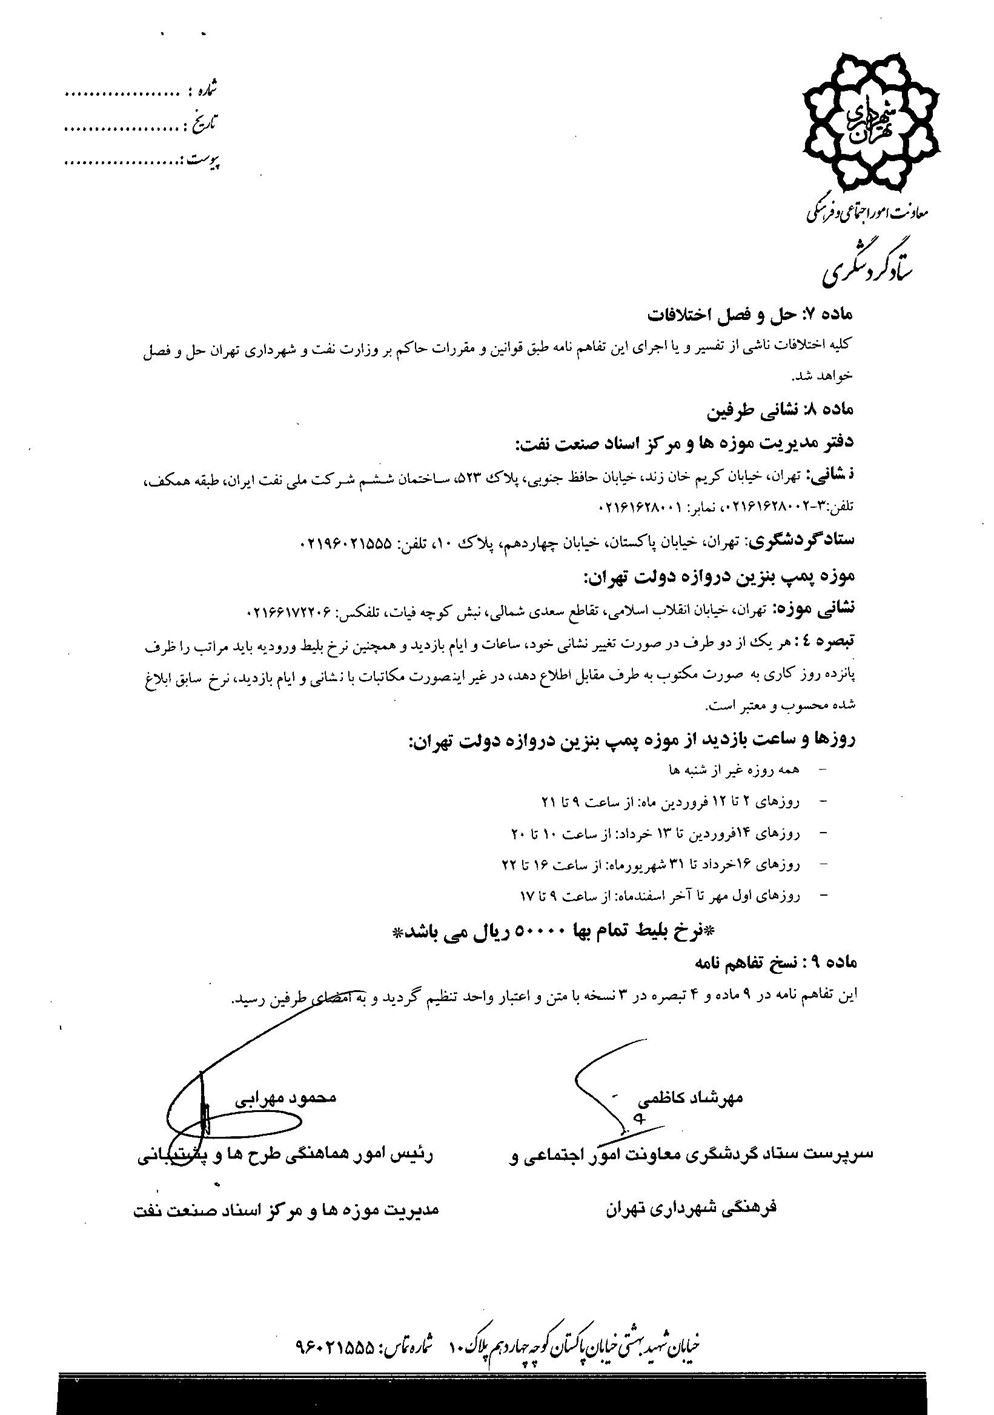 شماره : ...................
تاریخ : ...................
پیوست : ...................
شهرداری تهران
معاونت امور اجتماعی و فرهنگی
ستاد گردشگری
ماده ۷: حل و فصل اختلافات
کلیه اختلافات ناشی از تفسیر و یا اجرای این تفاهم نامه طبق قوانین و مقررات حاکم بر وزارت نفت و شهرداری تهران حل و فصل
خواهد شد.
ماده ۸: نشانی طرفین
دفتر مدیریت موزه ها و مرکز اسناد صنعت نفت:
نشانی: تهران، خیابان کریم خان زند، خیابان حافظ جنوبی، پلاک ۵۲۳، ساختمان ششم شرکت ملی نفت ایران، طبقه همکف،
تلفن:۳-۰۲۱۶۱۶۲۸۰۰۲، نمابر: ۰۲۱۶۱۶۲۸۰۰۱
ستادگردشگری: تهران، خیابان پاکستان، خیابان چهاردهم، پلاک ۱۰، تلفن: ۰۲۱۹۶۰۲۱۵۵۵
موزه پمپ بنزین دروازه دولت تهران:
نشانی موزه: تهران، خیابان انقلاب اسلامی، تقاطع سعدی شمالی، نبش کوچه فیات، تلفکس: ۰۲۱۶۶۱۷۲۲۰۶
تبصره ٤: هر یک از دو طرف در صورت تغییر نشانی خود، ساعات و ایام بازدید و همچنین نرخ بلیط ورودیه باید مراتب را ظرف
پانزده روز کاری به صورت مکتوب به طرف مقابل اطلاع دهد، در غیر اینصورت مکاتبات با نشانی و ایام بازدید، نرخ سابق ابلاغ
شده محسوب و معتبر است.
روزها و ساعت بازدید از موزه پمپ بنزین دروازه دولت تهران:
- همه روزه غیر از شنبه ها
- روزهای ۲ تا ۱۲ فروردین ماه: از ساعت ۹ تا ۲۱
- روزهای ۱۴فروردین تا ۱۳ خرداد: از ساعت ۱۰ تا ۲۰
- روزهای ۱۶خرداد تا ۳۱ شهریورماه: از ساعت ۱۶ تا ۲۲
- روزهای اول مهر تا آخر اسفندماه: از ساعت ۹ تا ۱۷
*نرخ بلیط تمام بها ۵۰۰۰۰ ریال می باشد*
ماده ۹ : نسخ تفاهم نامه
این تفاهم نامه در ۹ ماده و ۴ تبصره در ۳ نسخه با متن و اعتبار واحد تنظیم گردید و به امضای طرفین رسید.
مهرشاد کاظمی
سرپرست ستاد گردشگری معاونت امور اجتماعی و
فرهنگی شهرداری تهران
محمود مهرابی
رئیس امور هماهنگی طرح ها و پشتیبانی
مدیریت موزه ها و مرکز اسناد صنعت نفت
خیابان شهید بهشتی خیابان پاکستان کوچه چهاردهم پلاک ۱۰ شماره تماس: ۹۶۰۲۱۵۵۵